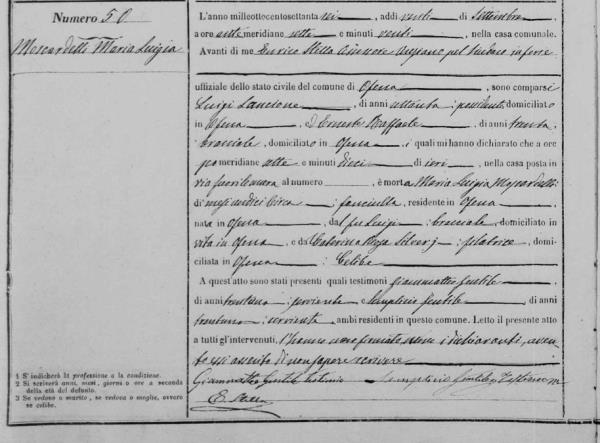 Numero 50
Moscardelli Maria Luigia
L'anno milleottocentosettanta sei, addì venti di Settembre,
a ore antemeridiane sette e minuti venti, nella casa comunale.
Avanti di me Enrico Stella Assessore Anziano pel Sindaco infermo
uffiziale dello stato civile del comune di Ofena, sono comparsi
Luigi Lancione, di anni ottanta; possidente, domiciliato
in Ofena, e D'Ernesto Raffaele, di anni trenta,
bracciale, domiciliato in Ofena, i quali mi hanno dichiarato che a ore
pomeridiane sette e minuti dieci di ieri, nella casa posta in
via fuorilemura al numero, è morta Maria Luigia Moscardelli
di mesi undici circa; fanciulla, residente in Ofena,
nata in Ofena, dal fu Luigi; bracciale, domiciliato in
vita in Ofena, e da Caterina Rosa Silverj; filatrice, domi-
ciliata in Ofena; Celibe
A quest'atto sono stati presenti quali testimoni Giammatteo Gentile,
di anni trentuno; serviente e Simplicio Gentile, di anni
trentuno; serviente ambi residenti in questo comune. Letto il presente atto
a tutti gl'intervenuti, l'hanno meco firmato, meno i dichiaranti, aven-
do essi asserito di non sapere scrivere
Giammatteo Gentile testimonio Simplicio Gentile Testimonio
E. Stella
1 S'indicherà la professione o la condizione.
2 Si scriverà anni, mesi, giorni o ore a seconda
della età del defunto.
3 Se vedovo o marito, se vedova o moglie, ovvero
se celibe.